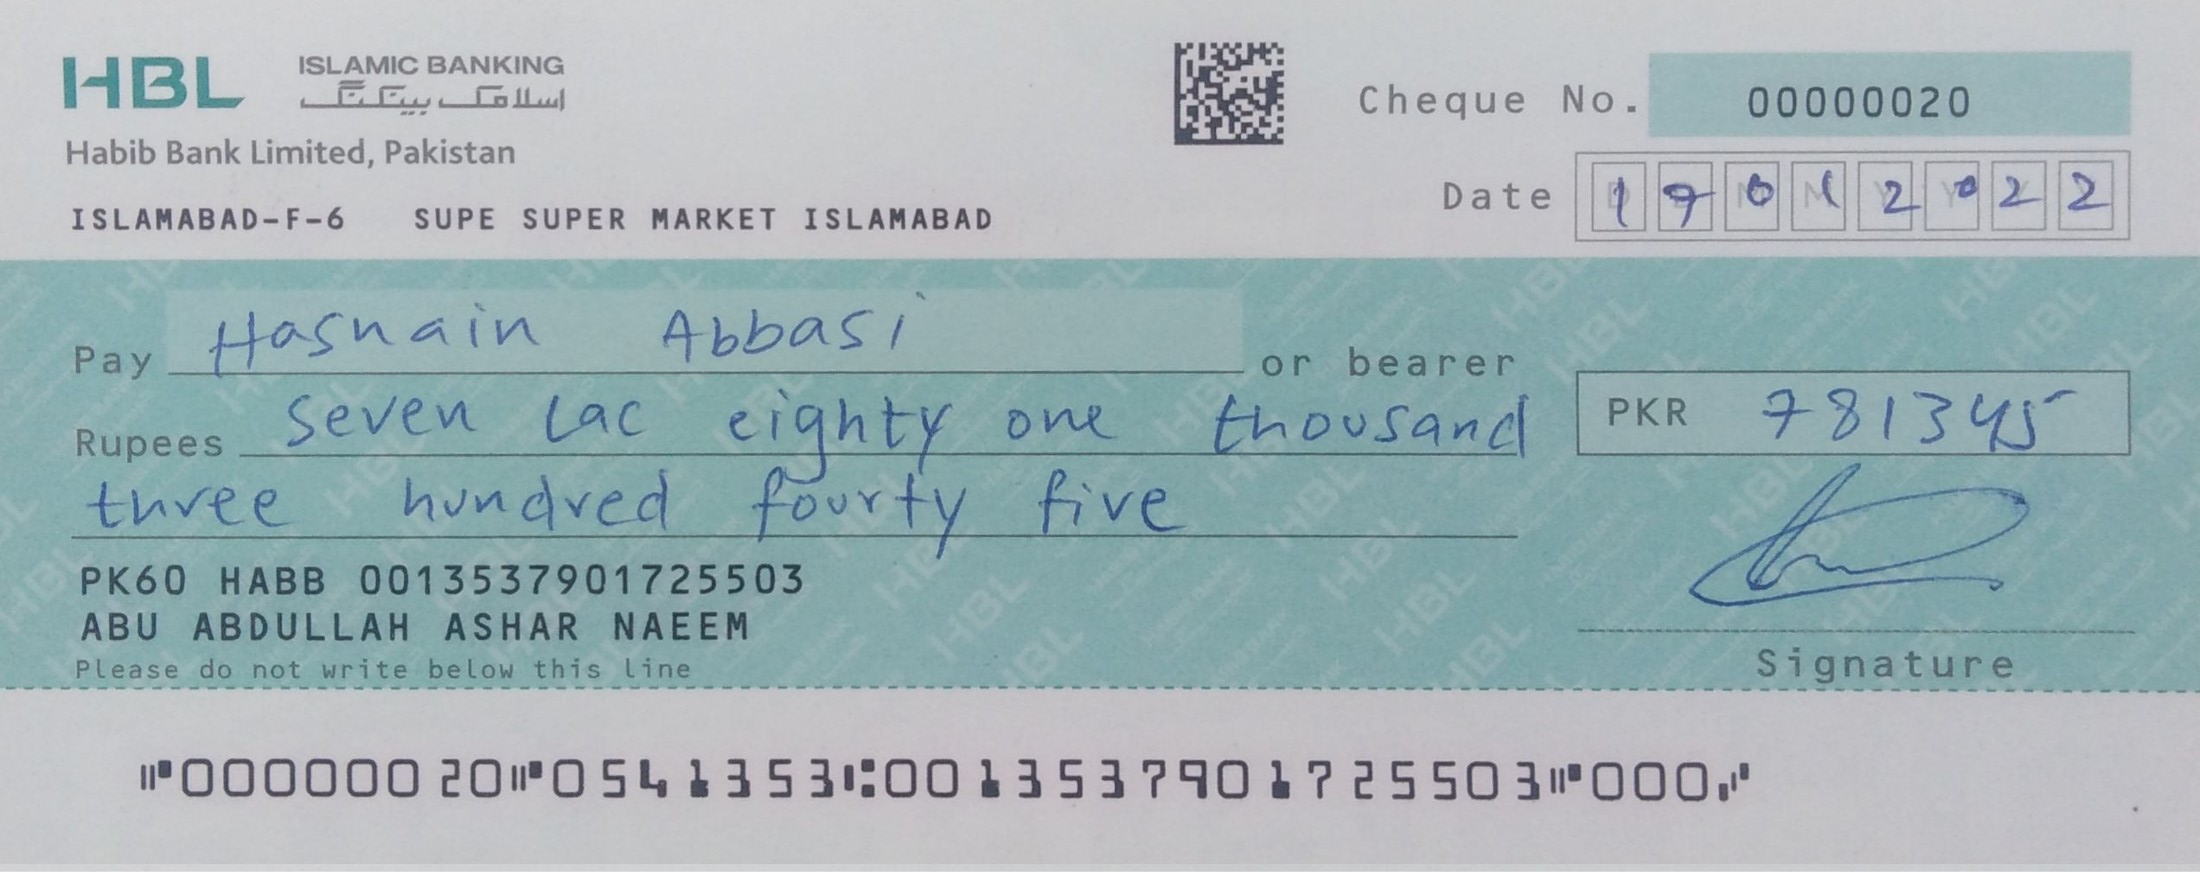 HBL ISLAMIC BANKING
اسلامک بینکنگ
Habib Bank Limited, Pakistan
ISLAMABAD-F-6 SUPE SUPER MARKET ISLAMABAD
Cheque No. 00000020
Date 17012022
Pay Hasnain Abbasi or bearer
Rupees seven lac eighty one thousand
three hundred fourty five
PKR 781345
PK60 HABB 0013537901725503
ABU ABDULLAH ASHAR NAEEM
Please do not write below this line
Signature
⑈00000020⑈0541353⑆0013537901725503⑈000⑇